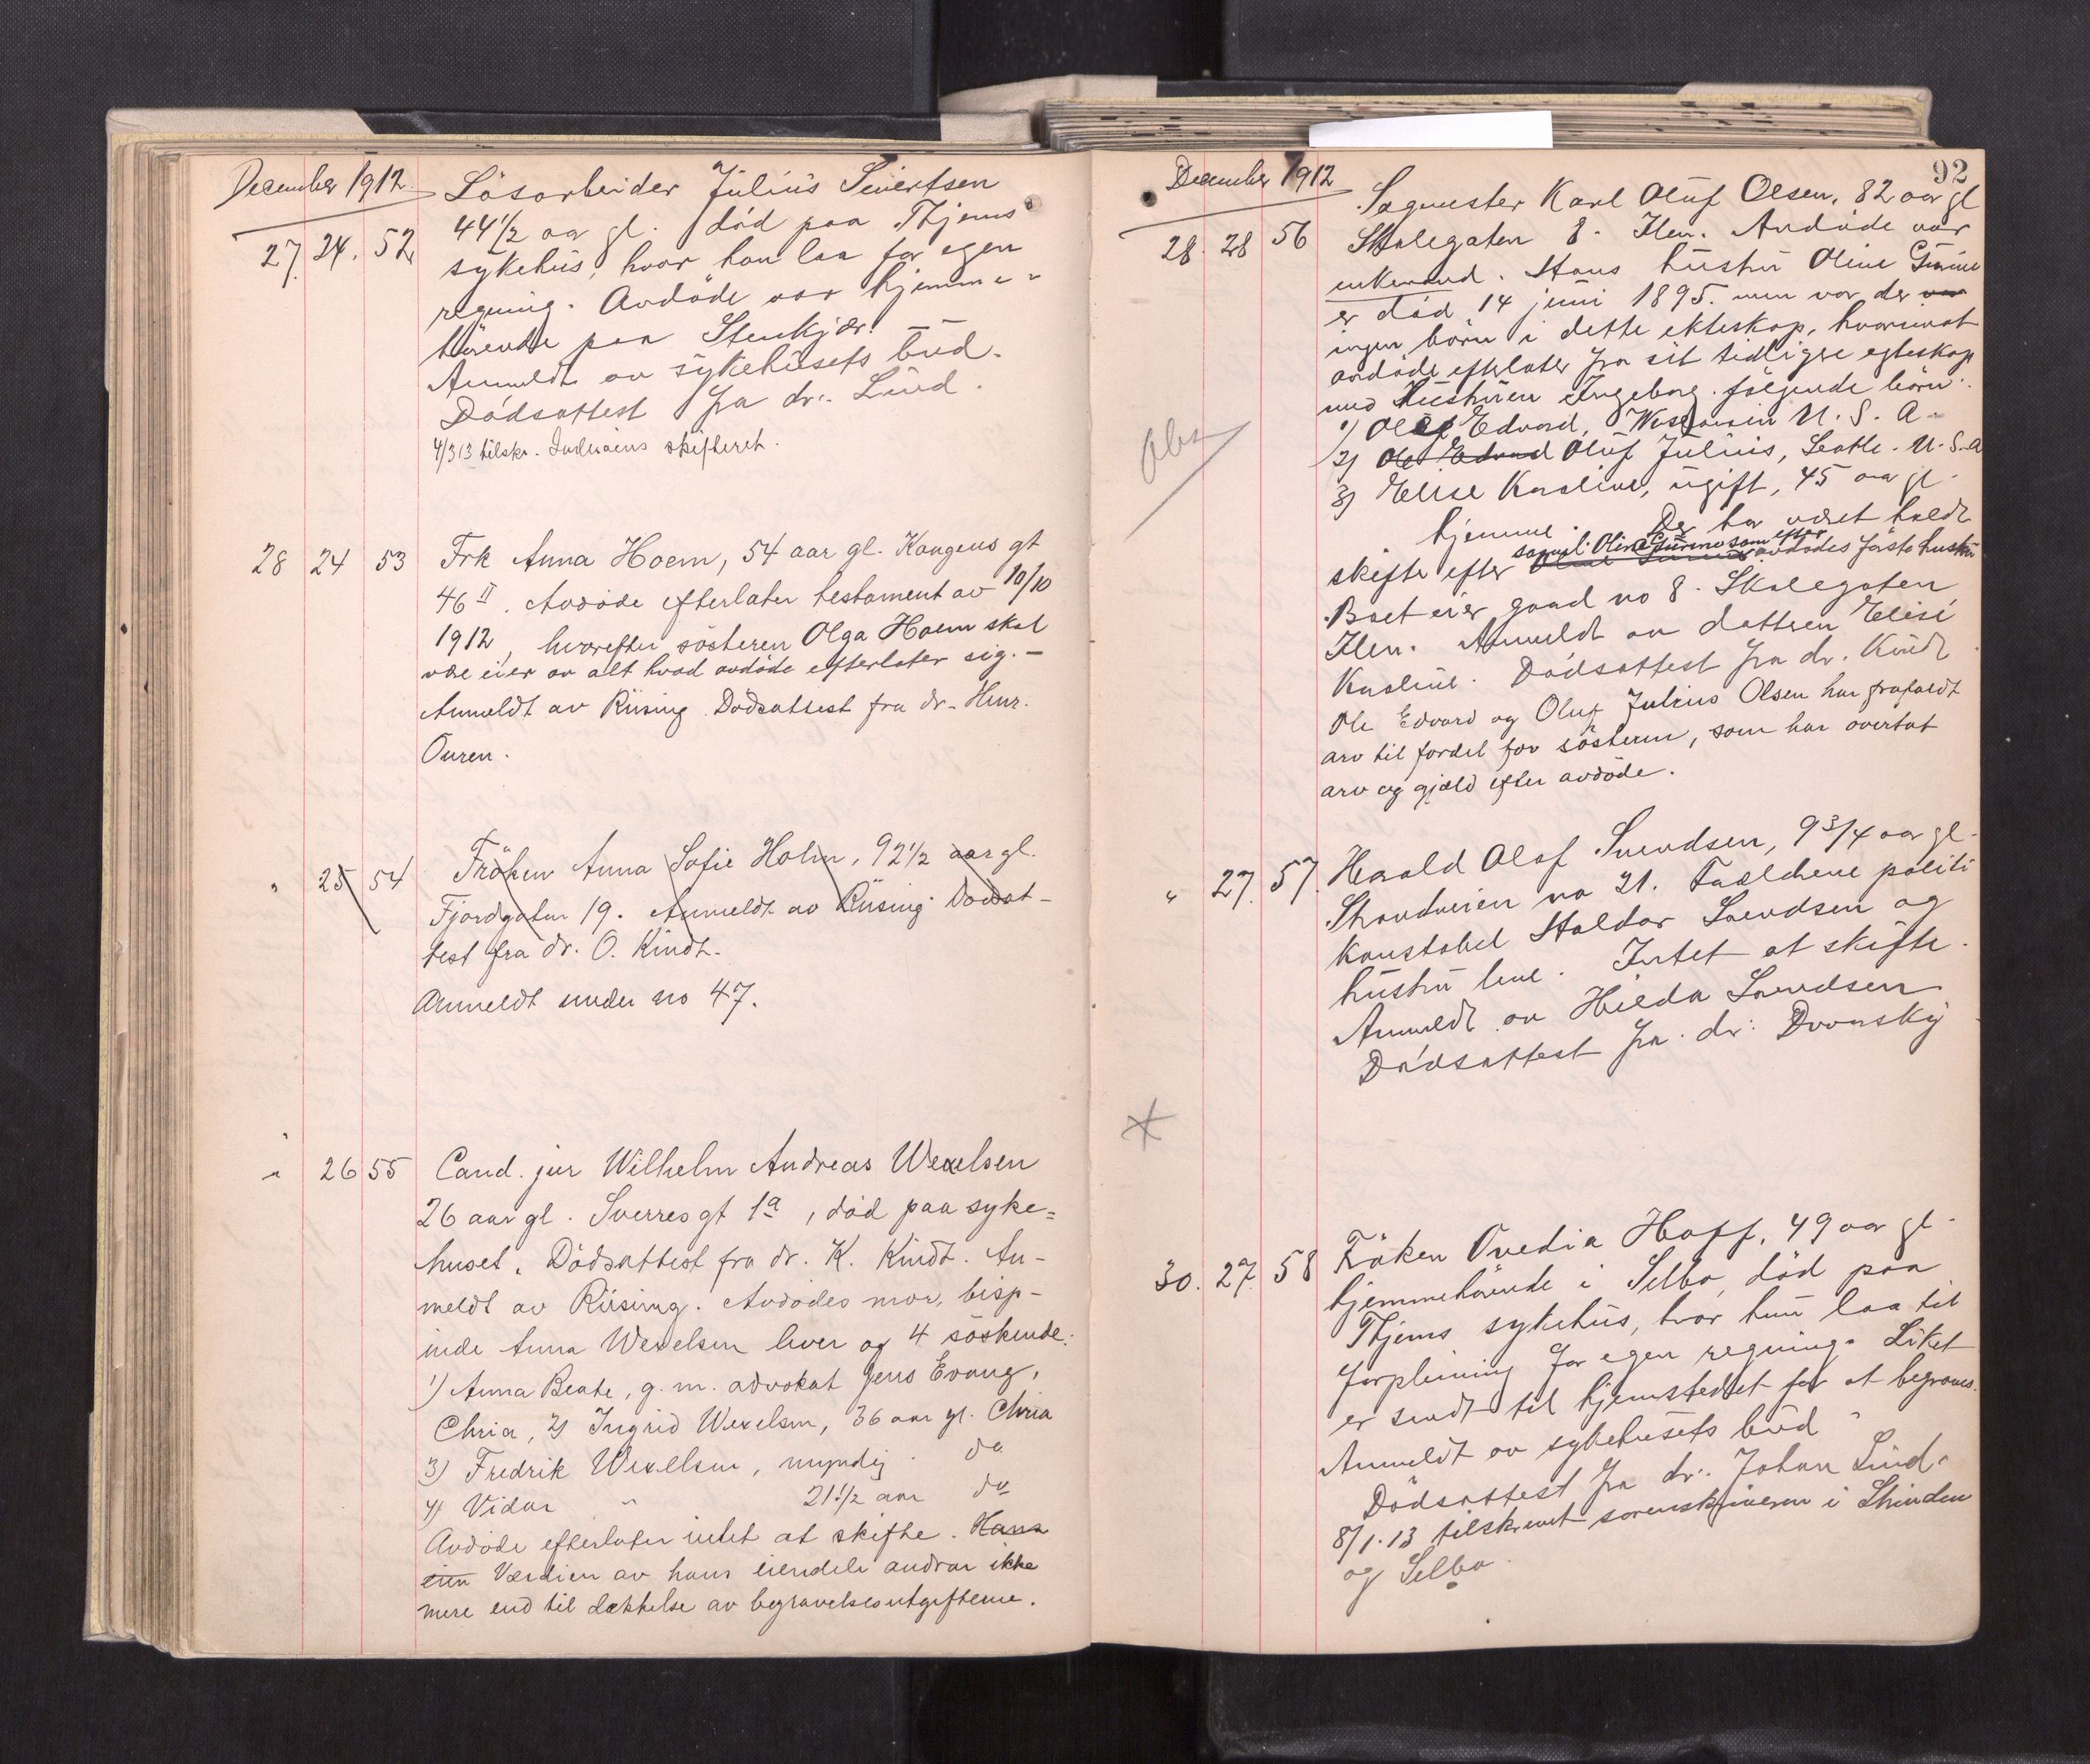 December 1912.
Lösarbeider Julius Sivertsen
27. 24. 52 44 1/2 aar gl. död paa Thjems
sykehus, hvor han laa for egen
regning. Avdöde var hjemme-
hörende paa Stenkjær.
Anmeldt av sykehusets bud.
Dödsattest fra dr. Lind.
4/3 13 tilskr. Inderöens skifteret.
28 24 53 Frk Anna Hoem, 54 aar gl. Kongens gt
46 II. Avdöde efterlater testament av 10/10
1912, hvorefter sösteren Olga Hoem skal
være eier av alt hvad avdöde efterlater sig. -
Anmeldt av Riising. Dödsattest fra dr. Henr.
Ouren.
" 25 54 Fröken Anna Sofie Holm, 92 1/2 aar gl.
Fjordgaten 19. Anmeldt av Riising. Dödsat-
test fra dr. O. Kindt.
Anmeldt under no 47.
" 26 55 Cand. jur Wilhelm Andreas Wexelsen
26 aar gl. Sverresgt 1a, död paa syke=
huset. Dödsattest fra dr. K. Kindt. An-
meldt av Riising. Avdödes mor, bisp-
inde Anna Wexelsen lever og 4 söskende:
1) Anna Beate, g. m. advokat Jens Evang,
Chria, 2) Ingrid Wexelsen, 36 aar gl. Chria
3) Fredrik Wexelsen, myndig. do
4) Vidar " 21 1/2 aar do
Avdöde efterlater intet at skifte. Hans
eien Værdien av hans eiendele andrar ikke
mere end til dækkelse av begravelsesutgifterne.
92
December 1912
Sagmester Karl Oluf Olsen, 82 aar gl
28. 28 56 Skolegaten 8. Ilen. Avdöde var
enkemand. Hans hustru Oline Gurine
er död 14 juni 1895. men var der var
ingen börn i dette ekteskap, hvorimot
avdöde efterlater fra sit tidligere egteskap
med hustruen Ingeborg. fölgende börn:
Obs
1) Ole Edvard, Wisconsin U. S. A.
2) Ole Edvard Oluf Julius, Seattle. U. S. A
3) Elise Karline, ugift, 45 aar gl.
hjemme. Der har været holdt
samel. Oline Gurine som efter
skifte efter Oline Gurine avdödes förste hustru
Boet eier gaard no 8. Skolegaten
Ilen. Anmeldt av datteren Elise
Karline. Dödsattest fra dr. Kindt
Ole Edvard og Oluf Julius Olsen har frafaldt
arv til fordel for sösteren, som har overtat
arv og gjæld efter avdöde.
" 27. 57. Harald Olaf Svendsen, 9 3/4 aar gl.
Strandveien no 21. Forældrene politi
konstabel Haldor Svendsen og
hustru leve. Intet at skifte.
Anmeldt av Hilda Svendsen
Dödsattest fra dr. Dvorsky
30. 27. 58 Fröken Ovedia Hoff, 49 aar gl.
hjemmehörende i Selbo, död paa
Thjems sykehus, hvor hun laa til
forpleining for egen regning. Liket
er sendt til hjemstedet for at begraves.
Anmeldt av sykehusets bud
Dödsattest fra dr. Johan Lind.
8/1. 13 tilskrevet sorenskriveren i Strinden
og Selbo.